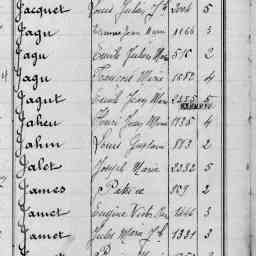 Jacquet Louis Julien Jh 2004 5
Jagu Jean Marie 1166 3
Jagu Emile Julien Marie 515 2
Jagu François Marie 1082 4
Jagut Emile Jean Marie 2355 5
Jaheu Henri Jean Marie 1735 4
Jahin Louis Gustave 883 2
Jalet Joseph Marie 2332 5
James Patrice 2
Jamet Eugène Victor 1646 3
Jamet Jules Marie Jh 1331 3